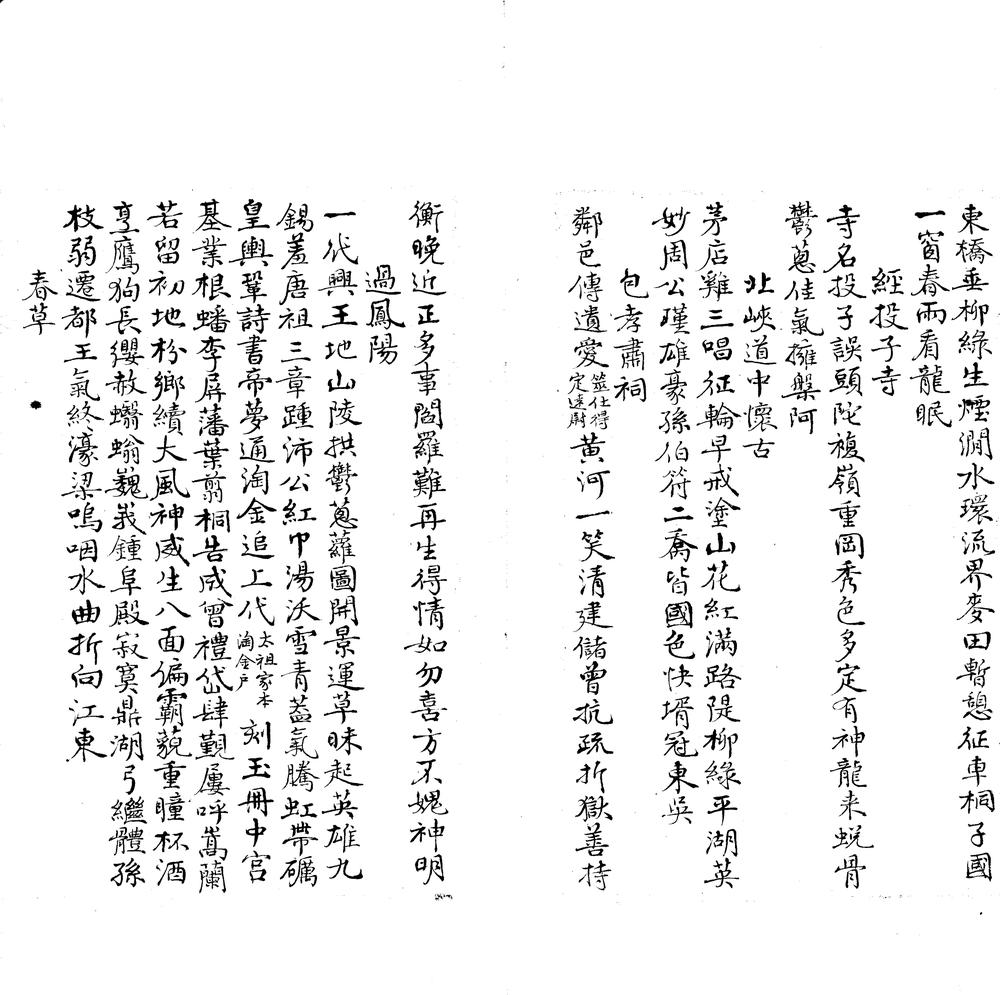 東橋垂柳綠生煙澗水環流界麥田暫憩征車桐子國
一窗春雨看龍眠
經投子寺
寺名投子誤頭陀複嶺重岡秀色多定有神龍來蛻骨
鬱蔥佳氣擁槃阿
北峽道中懷古
茅店雞三唱征輪早戒塗山花紅滿路隄柳綠平湖英
妙周公瑾雄豪孫伯符二喬皆國色快壻冠東吳
包孝肅祠
鄰邑傳遺愛筮仕得定遠尉黃河一笑清建儲曾抗疏折獄善持
衡晚近正多事閻羅難再生得情如勿喜方不媿神明
過鳳陽
一代興王地山陵拱鬱蔥蘿圖開景運草昧起英雄九
錫羞唐祖三章踵沛公紅巾湯沃雪青蓋氣騰虹帶礪
皇輿鞏詩書帝夢通淘金追上代太祖家本淘金戶刻玉冊中宮
基業根蟠李屏藩葉翦桐告成曾禮岱肆覲屢呼嵩蘭
若留初地枌鄉續大風神威生八面偏霸藐重瞳杯酒
烹鷹狗長纓赦蠮螉巍峩鍾阜殿寂寞鼎湖弓繼體孫
枝弱遷都王氣終濠梁嗚咽水曲折向江東
春草